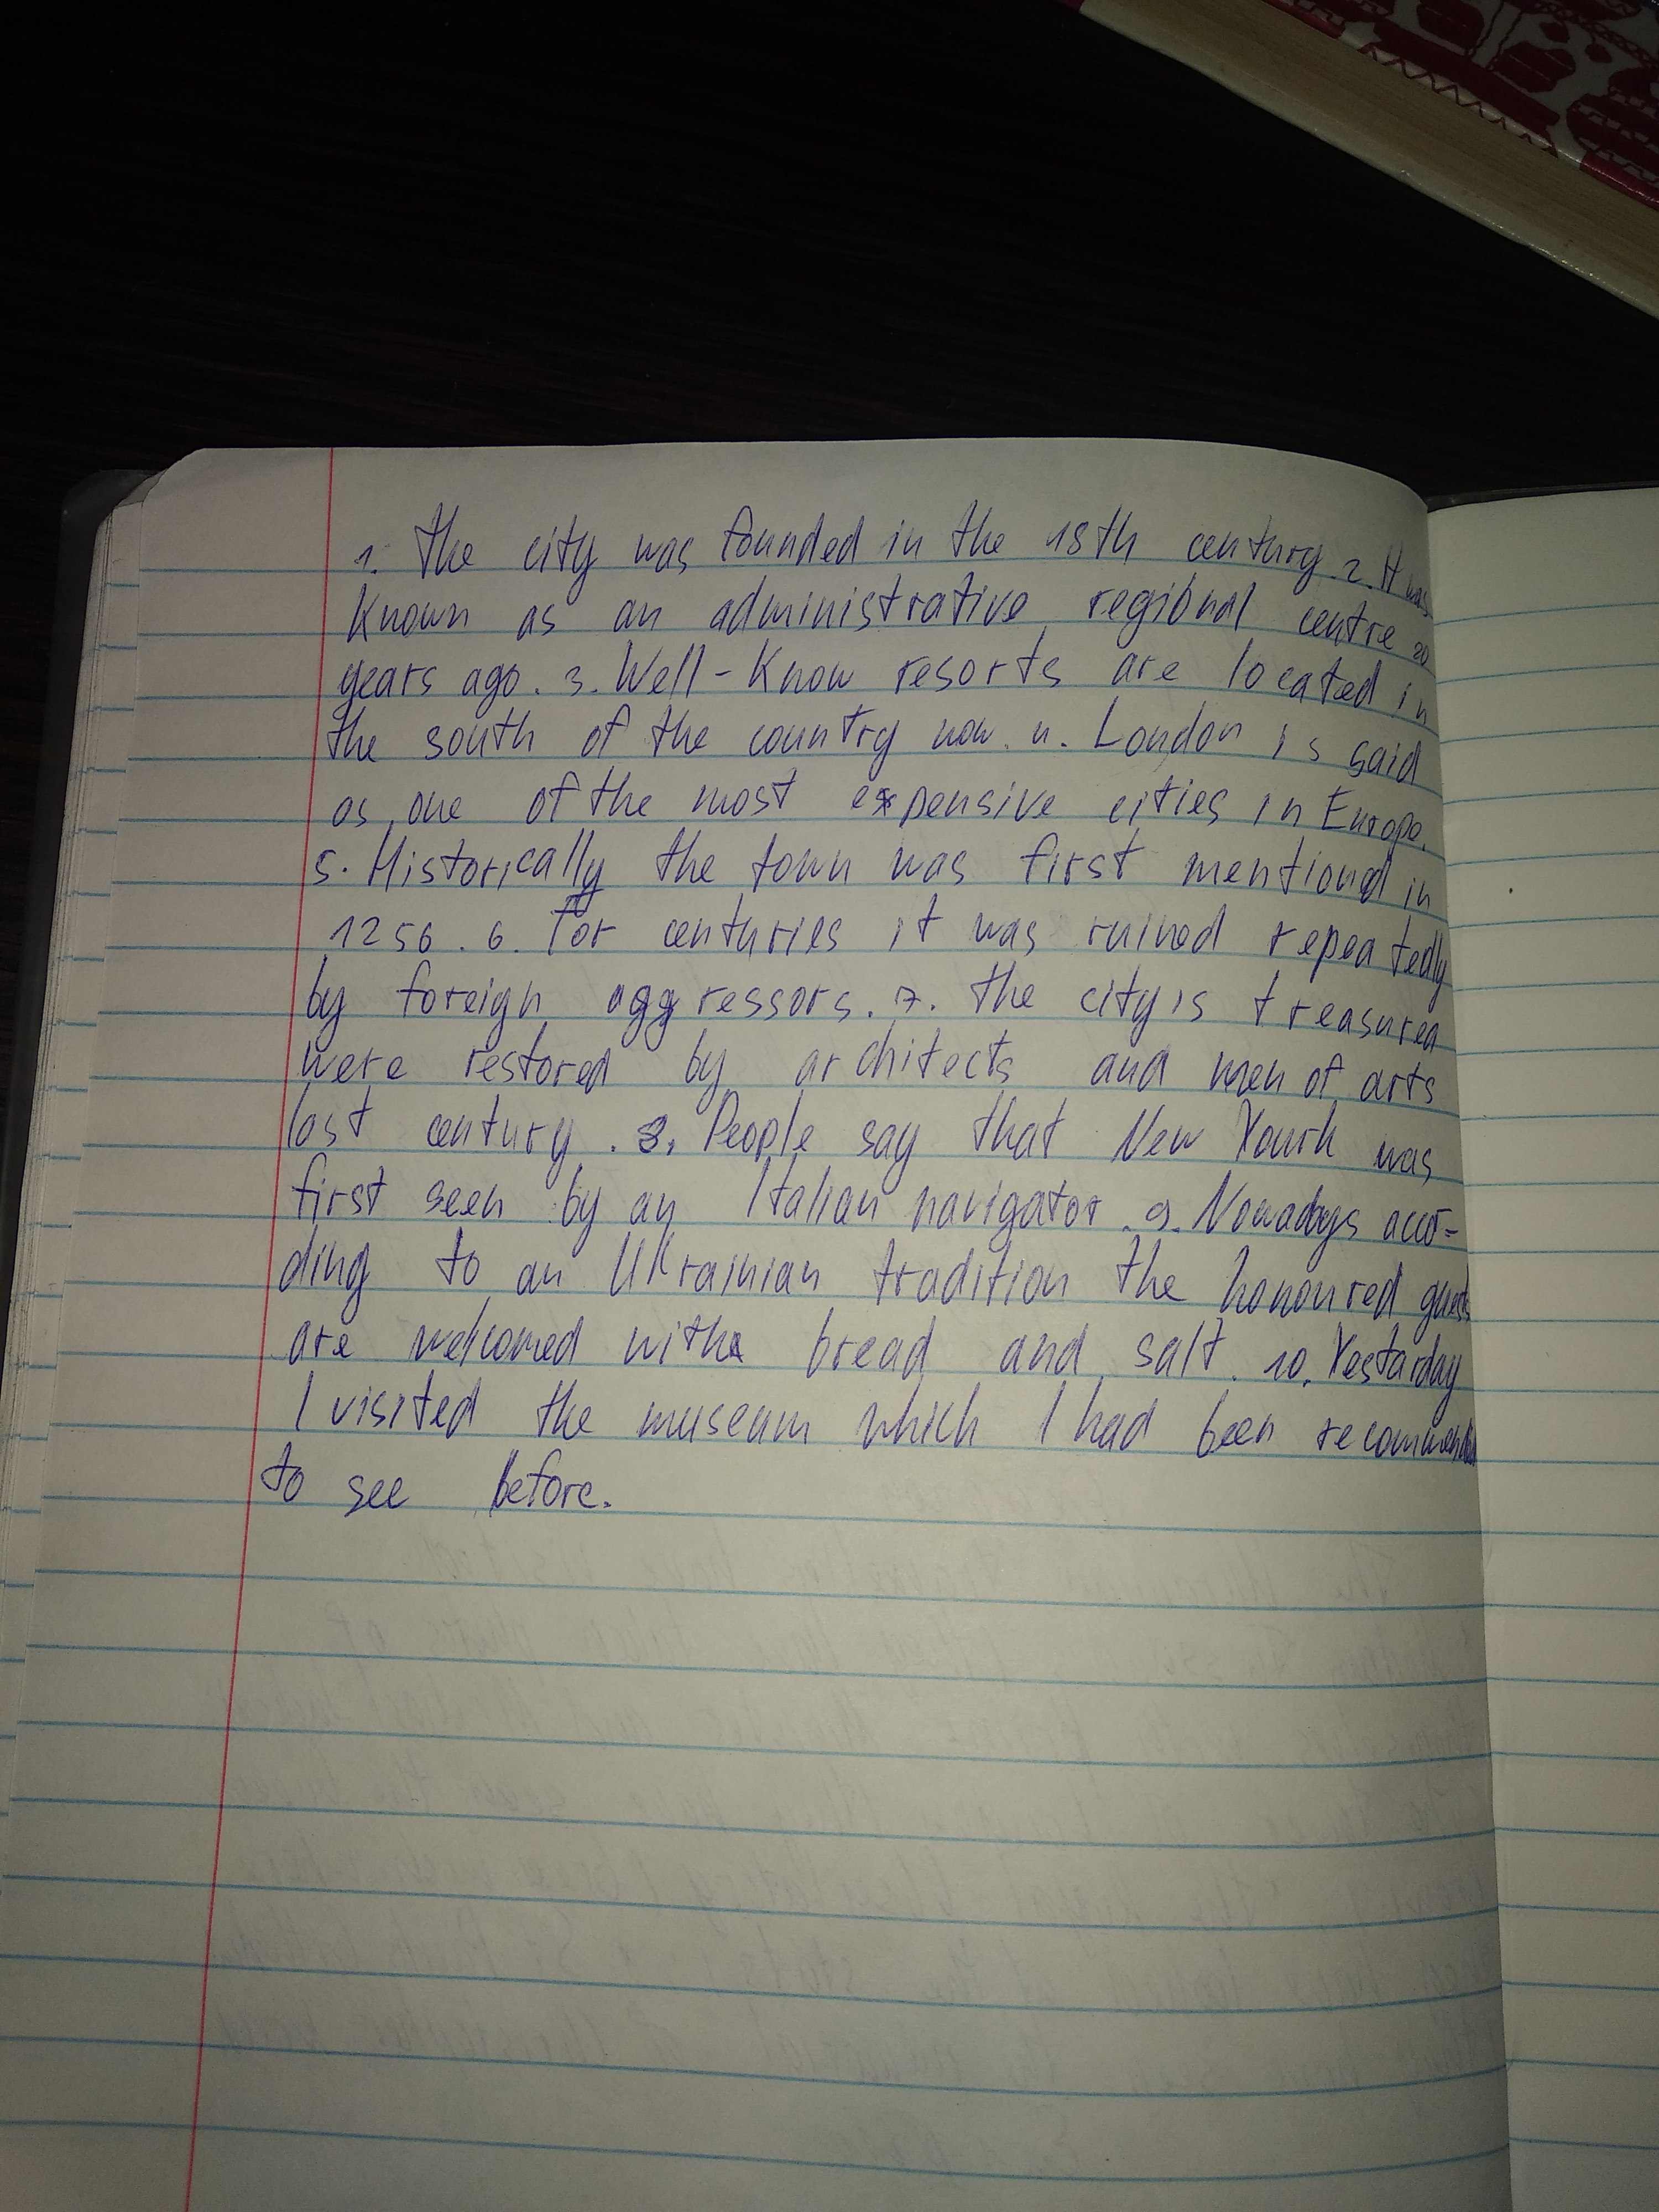 1. The city was founded in the 18th century. 2. It was
known as an administrative regional centre 20
years ago. 3. Well-Know resorts are located in
the south of the country now. 4. London is said
as one of the most expensive cities in Europe.
5. Historically the town was first mentioned in
1256. 6. For centuries it was ruined repeatedly
by foreign aggressors. 7. The city is treasured
were restored by architects and men of arts
last century. 8. People say that New Yourk was
first seen by an Italian navigator. 9. Nowadays acco-
ding to an Ukrainian tradition the honoured guests
are welcomed with bread and salt. 10. Yestarday
I visited the museum which I had been recommended
to see before.